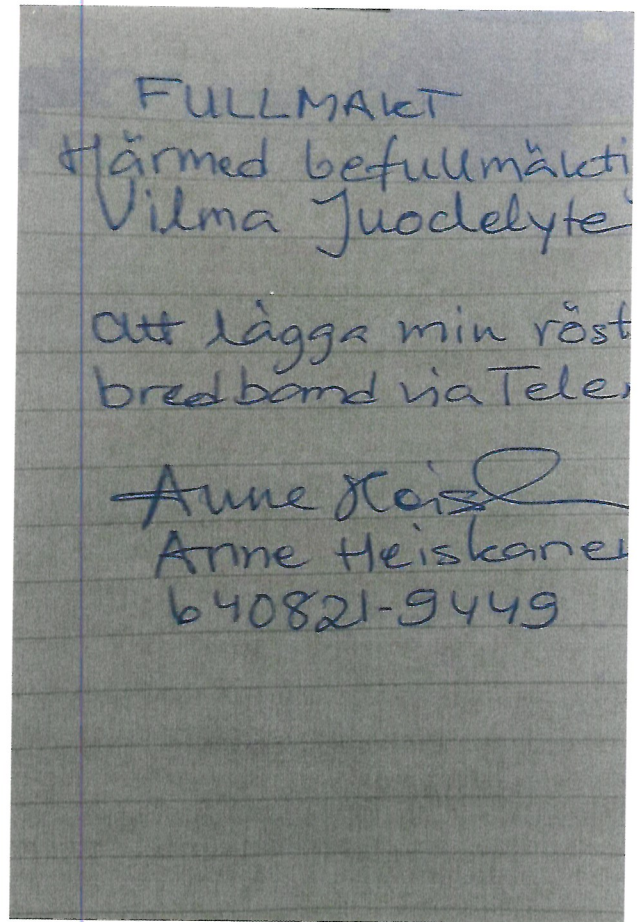 FULLMAKT
Härmed befullmäkti
Vilma Juodelyte
att lägga min röst
bredband via Tele
Anne Heis
Anne Heiskane
640821-9449